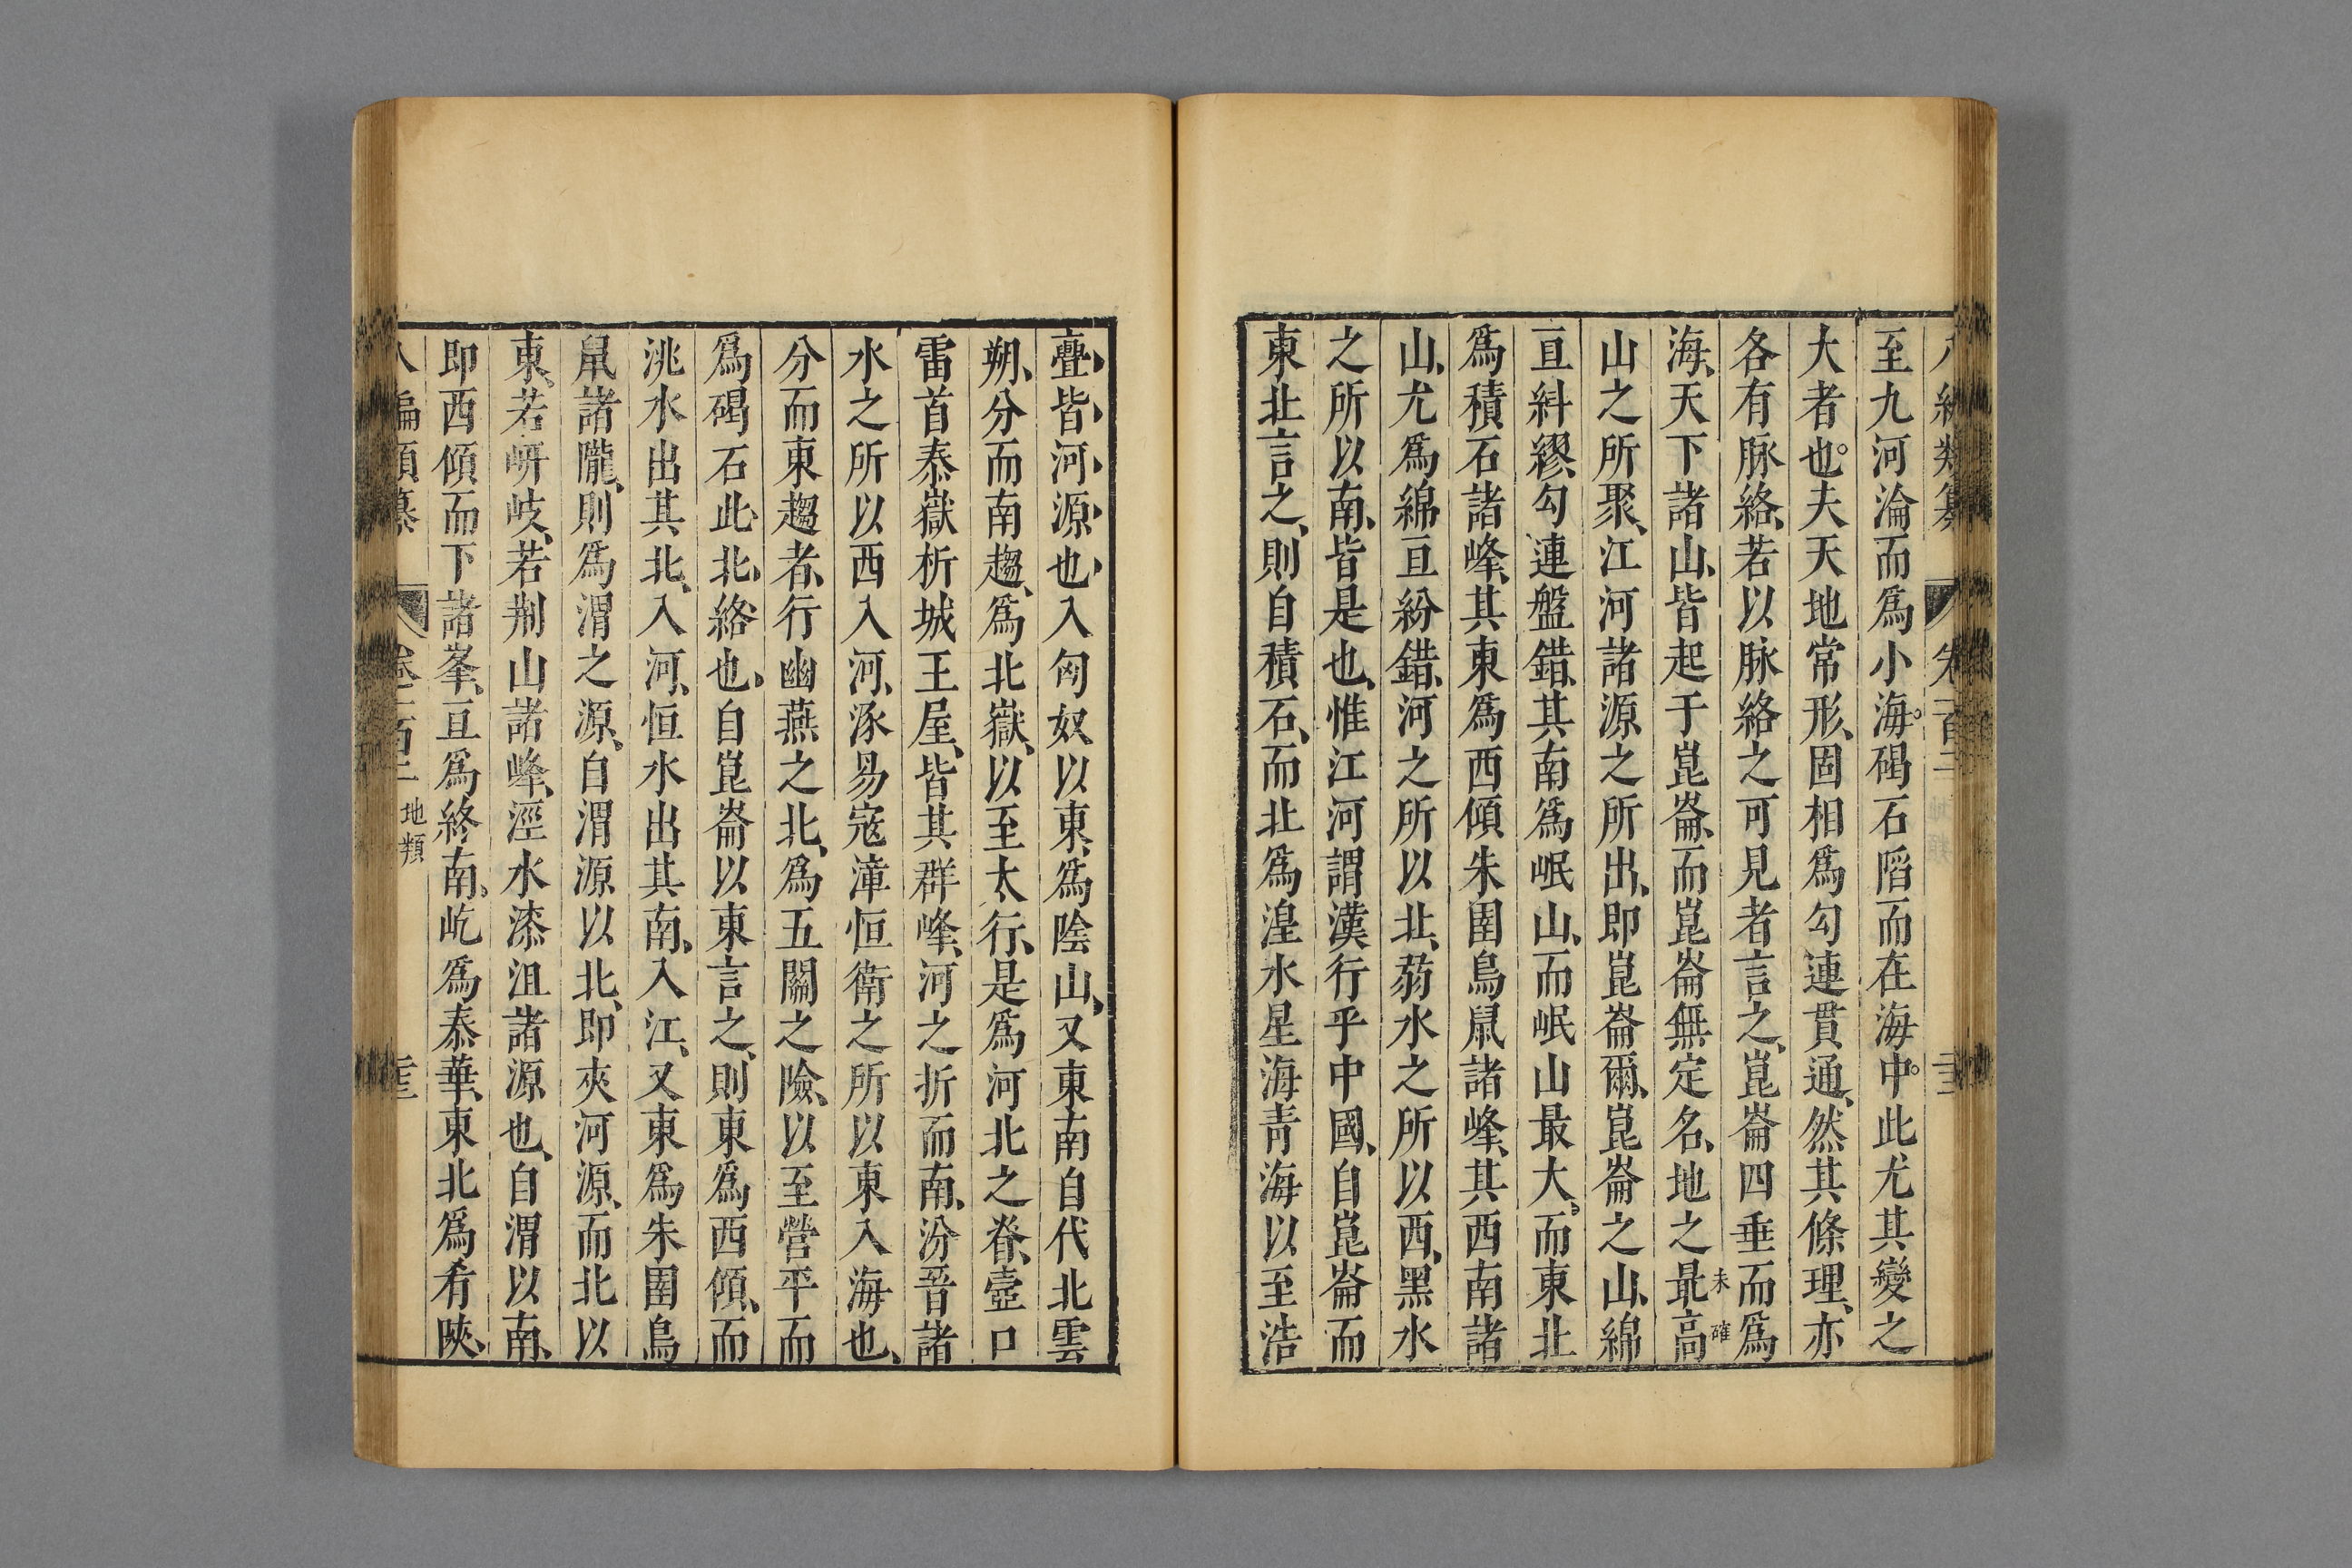 至九河淪而爲小海。碣石䧟而在海中。此尤其變之
大者也。夫天地常形、固相爲勾連貫通、然其條理、亦
各有脉絡、若以脉絡之可見者言之、崑崙四垂而爲
海、天下諸山、皆起于崑崙、而崑崙無定名、地之最高
未確
山之所聚、江河諸源之所出、即崑崙爾、崑崙之山、綿
亘糾繆、勾連盤錯、其南爲岷山、而岷山最大。而東北
爲積石諸峰、其東爲西傾朱圉鳥鼠諸峰、其西南諸
山、尤爲綿亘紛錯、河之所以北、弱水之所以西、黑水
之所以南、皆是也、惟江河謂漢行乎中國、自崑崙而
東北言之、則自積石、而北爲湟水星海青海以至浩
亹、皆、河、源、也、入匈奴以東、爲陰山、又東南自代北雲
朔、分而南趨、爲北嶽、以至太行、是爲河北之脊、壺口
雷首泰嶽析城王屋、皆其群峰、河之折而南、汾晉諸
水之所以西入河、涿易寇漳恒衛之所以東入海也、
分而東趨者、行幽燕之北、爲五關之險、以至營平而
爲碣石此、北、絡、也、自崑崙以東言之、則東爲西傾、而
洮水出其北、入河、恒水出其南、入江、又東爲朱圉鳥
鼠諸隴、則爲渭之源、自渭源以北、即夾河源、而北以
東、若岍岐、若荆山諸峰、涇水漆沮諸源也、自渭以南、
即西傾而下諸峯、亘爲終南。屹爲泰華、東北爲肴陝、
地類